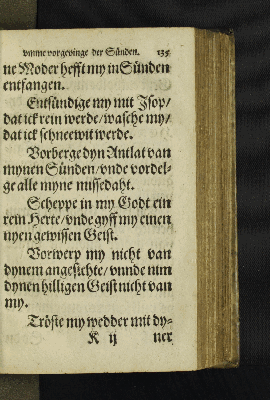 vmme vorgevinge der Sünden. 135
ne Moder hefft my in Sünden
entfangen.
Entsündige my mit Isop/
dat ick rein werde/ wasche my/
dat ick schneewit werde.
Vorberge dyn Antlat van
mynen Sünden/ vnde vordel-
ge alle myne missedaht.
Scheppe in my Godt ein
rein Herte/ vnde gyff my einen
nyen gewissen Geist.
Vorwerp my nicht van
dynem angesichte/ vnnde nim
dynen hilligen Geist nicht van
my.
Tröste my wedder mit dy-
K ij ner